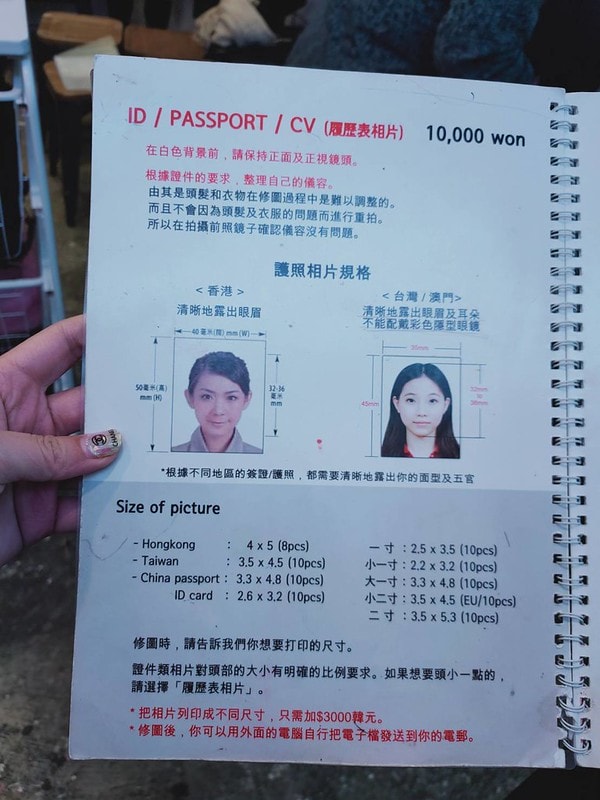 ID / PASSPORT / CV (履歷表相片) 10,000 won
在白色背景前，請保持正面及正視鏡頭。
根據證件的要求，整理自己的儀容。
由其是頭髮和衣物在修圖過程中是難以調整的。
而且不會因為頭髮及衣服的問題而進行重拍。
所以在拍攝前照鏡子確認儀容沒有問題。
護照相片規格
< 香港 >
清晰地露出眼眉
40 毫米(闊) mm (W)
50毫米(高) mm (H)
32-36 毫米 mm
< 台灣 / 澳門 >
清晰地露出眼眉及耳朵
不能配戴彩色隱型眼鏡
35mm
45mm
32mm
36mm
*根據不同地區的簽證/護照，都需要清晰地露出你的面型及五官
Size of picture
- Hongkong : 4 x 5 (8pcs)
- Taiwan : 3.5 x 4.5 (10pcs)
- China passport : 3.3 x 4.8 (10pcs)
ID card : 2.6 x 3.2 (10pcs)
一 寸 : 2.5 x 3.5 (10pcs)
小一寸 : 2.2 x 3.2 (10pcs)
大一寸 : 3.3 x 4.8 (10pcs)
小二寸 : 3.5 x 4.5 (EU/10pcs)
二 寸 : 3.5 x 5.3 (10pcs)
修圖時，請告訴我們你想要打印的尺寸。
證件類相片對頭部的大小有明確的比例要求。如果想要頭小一點的，
請選擇「履歷表相片」。
* 把相片列印成不同尺寸，只需加$3000韓元。
* 修圖後，你可以用外面的電腦自行把電子檔發送到你的電郵。